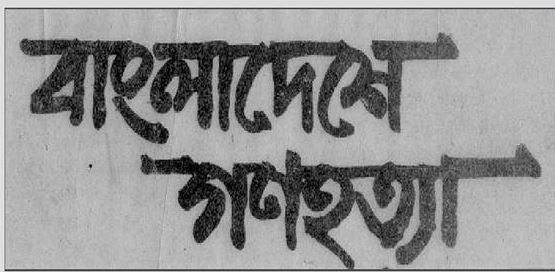 বাংলাদেশে
গণহত্যা